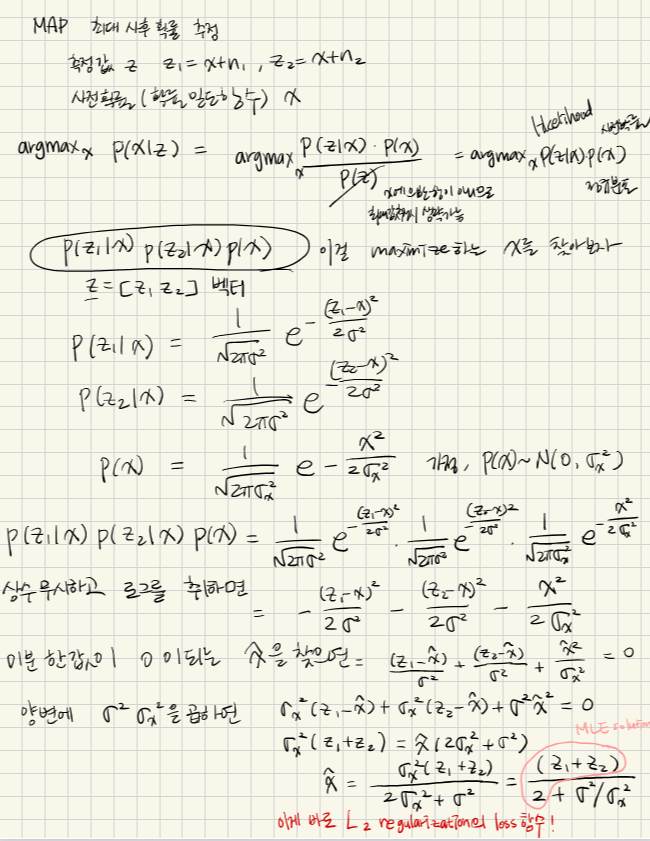 MAP 최대 사후 확률 추정
측정값 z z₁ = x+n₁, z₂ = x+n₂
사전확률 (확률 밀도함수) x
argmaxₓ P(x|z) = argmaxₓ P(z|x)·P(x) / P(z) = argmaxₓ P(z|x)·P(x)
likelihood 사전확률
x에 의한 항이 아니므로
생략가능
P(z₁|x) P(z₂|x) P(x) 이걸 maximize하는 x를 찾아보자
z = [z₁ z₂] 벡터
P(z₁|x) = 1/√(2πσ²) e^(-(z₁-x)²/2σ²)
P(z₂|x) = 1/√(2πσ²) e^(-(z₂-x)²/2σ²)
P(x) = 1/√(2πσₓ²) e - x²/2σₓ² 가정, P(x)~N(0, σₓ²)
P(z₁|x) P(z₂|x) P(x) = 1/√(2πσ²) e^(-(z₁-x)²/2σ²) · 1/√(2πσ²) e^(-(z₂-x)²/2σ²) · 1/√(2πσₓ²) e^(-x²/2σₓ²)
상수 무시하고 로그를 취하면 = - (z₁-x)²/2σ² - (z₂-x)²/2σ² - x²/2σₓ²
미분 한값이 0 이되는 x̂을 찾으면 = (z₁-x̂)/σ² + (z₂-x̂)/σ² + x̂²/σₓ² = 0
양변에 σ² σₓ²을 곱하면 σₓ²(z₁-x̂) + σₓ²(z₂-x̂) + σ²x̂² = 0
MLE solution
σₓ²(z₁+z₂) = x̂(2σₓ²+σ²)
x̂ = σₓ²(z₁+z₂) / (2σₓ²+σ²) = (z₁+z₂) / (2+σ²/σₓ²)
이게 바로 L₂ regularization의 loss함수!